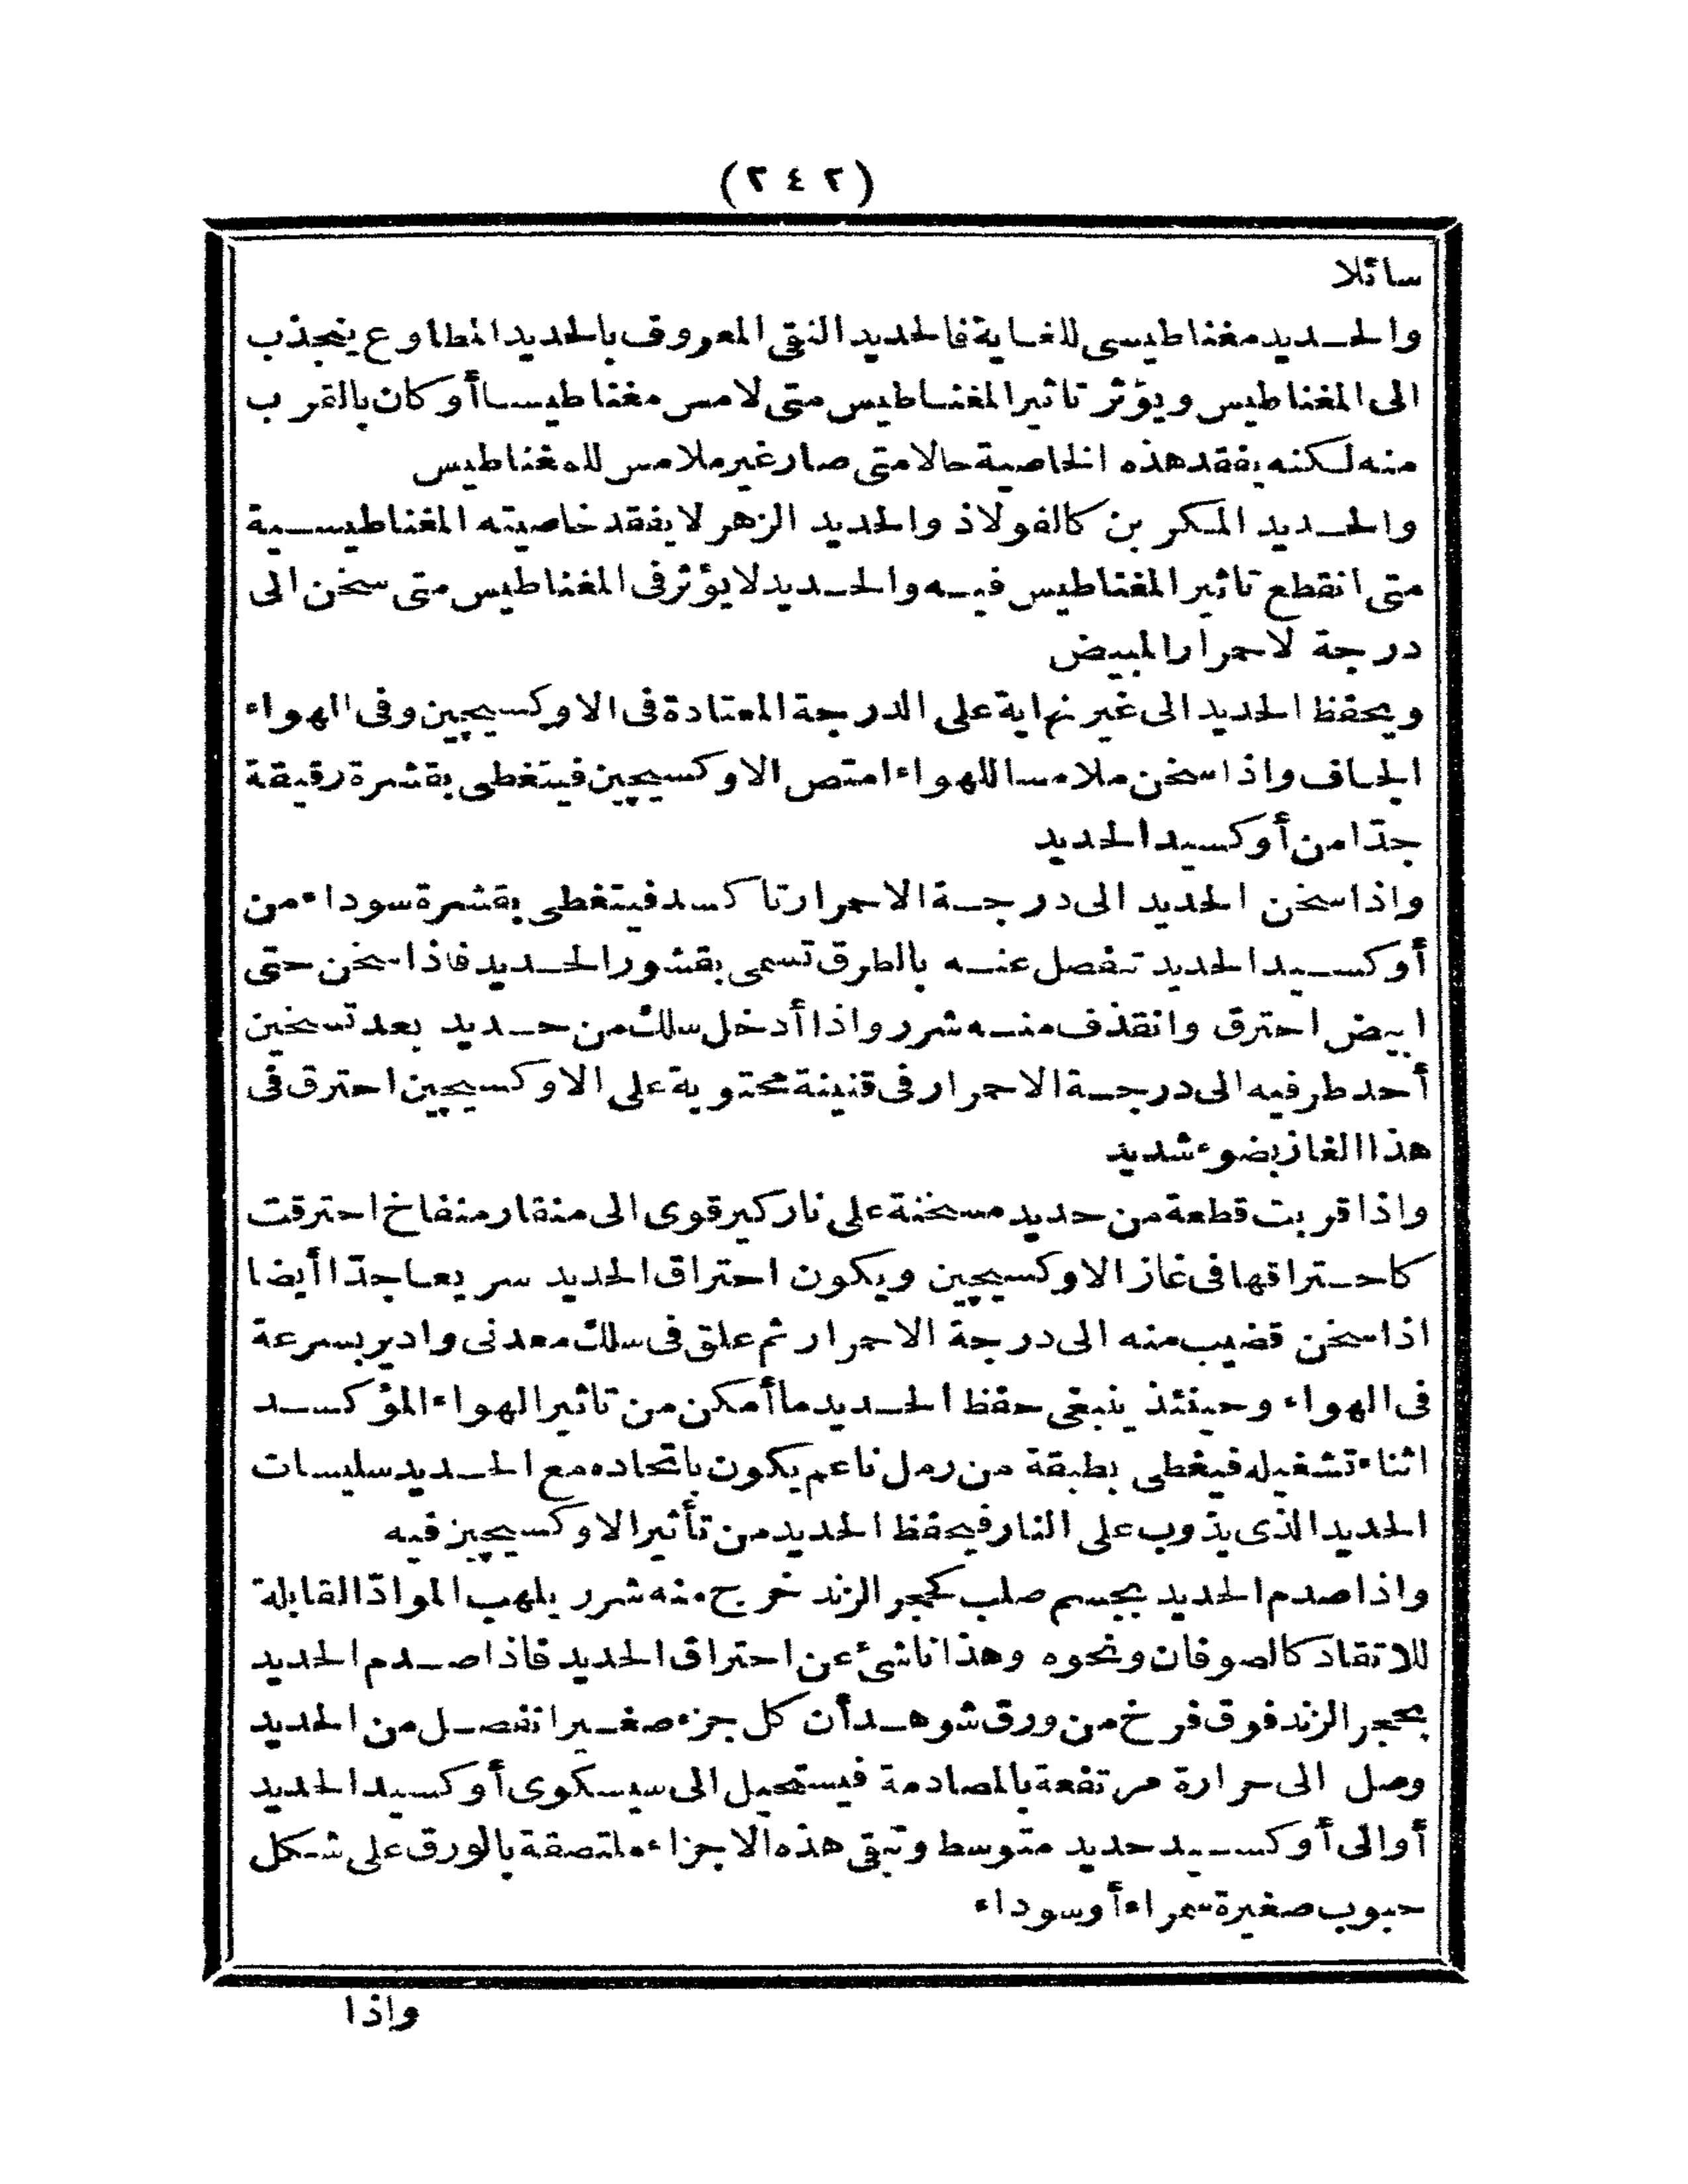 (٢٤٢)
سائلا
والحديد مغناطيسى للغاية فالحديد النقى المعروف بالحديد المطاوع ينجذب
الى المغناطيس ويؤثر تاثير المغناطيس متى لامس مغناطيسا أو كان بالقرب
منه لكنه يفقد هذه الخاصية حالا متى صار غير ملامس للمغناطيس
والحديد المكربن كالفولاذ والحديد الزهر لا يفقد خاصيته المغناطيسية
متى انقطع تاثير المغناطيس فيه والحديد لا يؤثر فى المغناطيس متى سخن الى
درجة لاحمرار المبيض
ويحفظ الحديد الى غير نهاية على الدرجة المعتادة فى الاوكسيجين وفى الهواء
الجاف واذا سخن ملامسا للهواء امتص الاوكسيجين فيتغطى بقشرة رقيقة
جدّا من أوكسيد الحديد
واذا سخن الحديد الى درجة الاحمرار تاكسد فيتغطى بقشرة سوداء من
أوكسيد الحديد تنفصل عنه بالطرق تسمى بقشور الحديد فاذا سخن حتى
ابيض احترق وانقذف منه شرر واذا أدخل سلك من حديد بعد تسخين
أحد طرفيه الى درجة الاحمرار فى قنينة محتوية على الاوكسيجين احترق فى
هذا الغاز بضوء شديد
واذا قربت قطعة من حديد مسخنة على نار كير قوى الى منقار منفاخ احترقت
كاحتراقها فى غاز الاوكسيجين ويكون احتراق الحديد سريعا جدّا أيضا
اذا سخن قضيب منه الى درجة الاحمرار ثم علق فى سلك معدنى وادير بسرعة
فى الهواء وحينئذ ينبغى حفظ الحديد ما أمكن من تاثير الهواء المؤكسد
اثناء تشغيله فيغطى بطبقة من رمل ناعم يكون باتحاده مع الحديد سليسات
الحديد الذى يذوب على النار فيحفظ الحديد من تأثير الاوكسيجين فيه
واذا صدم الحديد بجسم صلب كحجر الزند خرج منه شرر يلهب الموادّ القابلة
للاتقاد كالصوفان ونحوه وهذا ناشئ عن احتراق الحديد فاذا صدم الحديد
بحجر الزند فوق فرخ من ورق شوهد أن كل جزء صغير انفصل من الحديد
وصل الى حرارة مرتفعة بالمصادمة فيستحيل الى سيسكوى أوكسيد الحديد
أو الى أوكسيد حديد متوسط وتبقى هذه الاجزاء ملتصقة بالورق على شكل
حبوب صغيرة سمراء أو سوداء
واذا